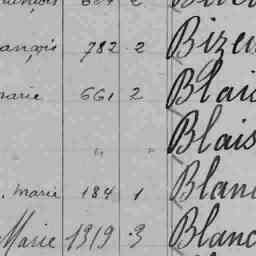 ançois 782 2 Bizeu
marie 661 2 Blaic
" " Blais
. Marie 184 1 Blanc
Marie 1319 .3 Blanc